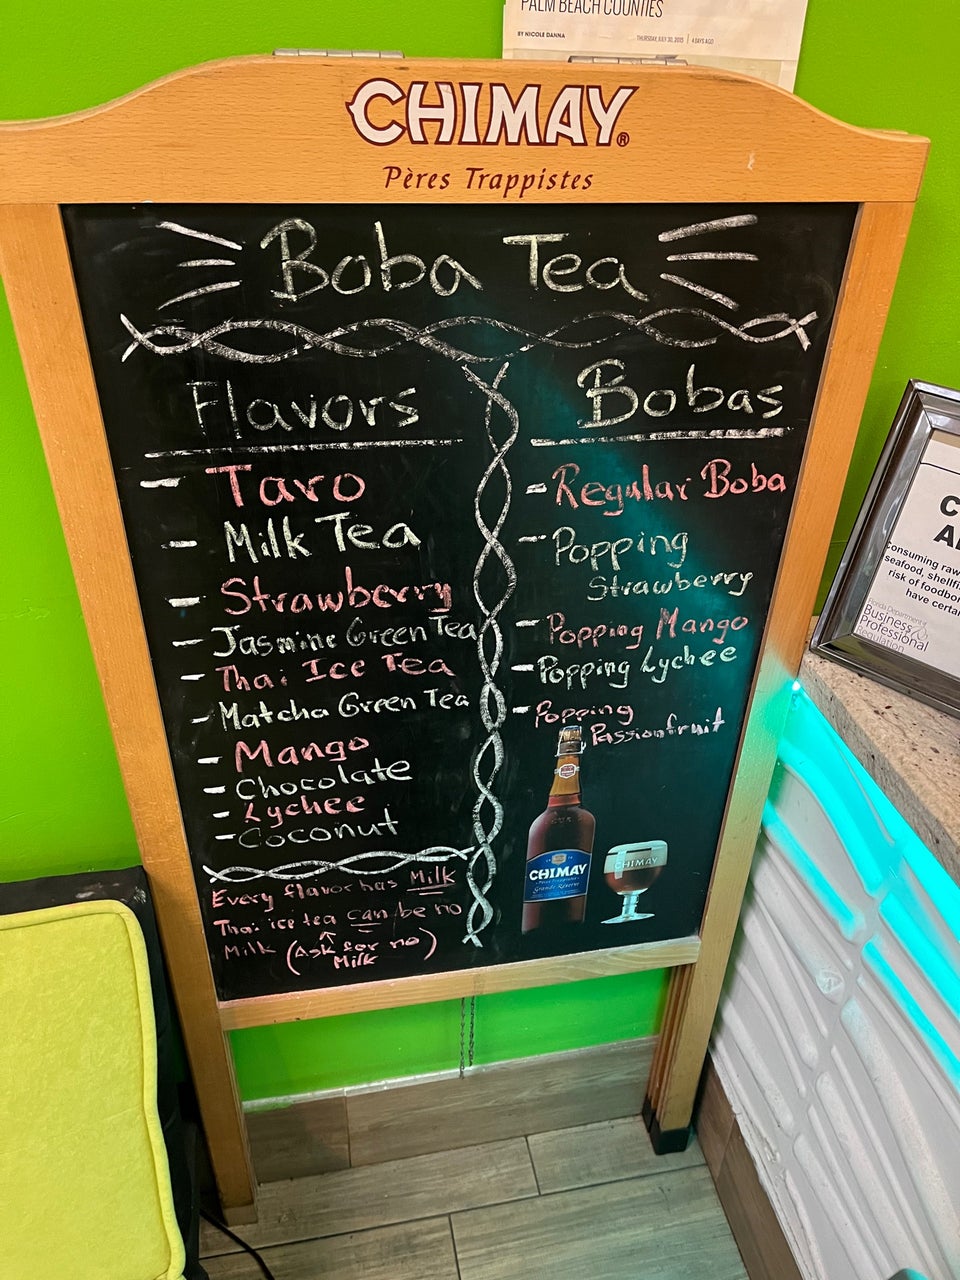 PALM BEACH COUNTIES
BY NICOLE DANNA
THURSDAY, JULY 30, 2015 | 4 DAYS AGO
CHIMAY®
Pères Trappistes
Boba Tea
Flavors
- Taro
- Milk Tea
- Strawberry
- Jasmine Green Tea
- Thai Ice Tea
- Matcha Green Tea
- Mango
- Chocolate
- Lychee
- Coconut
Every flavor has Milk
Thai ice tea can be no
Milk (Ask for no
Milk)
Bobas
- Regular Boba
- Popping
Strawberry
- Popping Mango
- Popping Lychee
- Popping
Passionfruit
CHIMAY
Pères Trappistes
Grande Réserve
CHIMAY
C
A
Consuming raw
seafood, shellfi
risk of foodbo
have certai
Florida Department of
Business &
Professional
Regulation